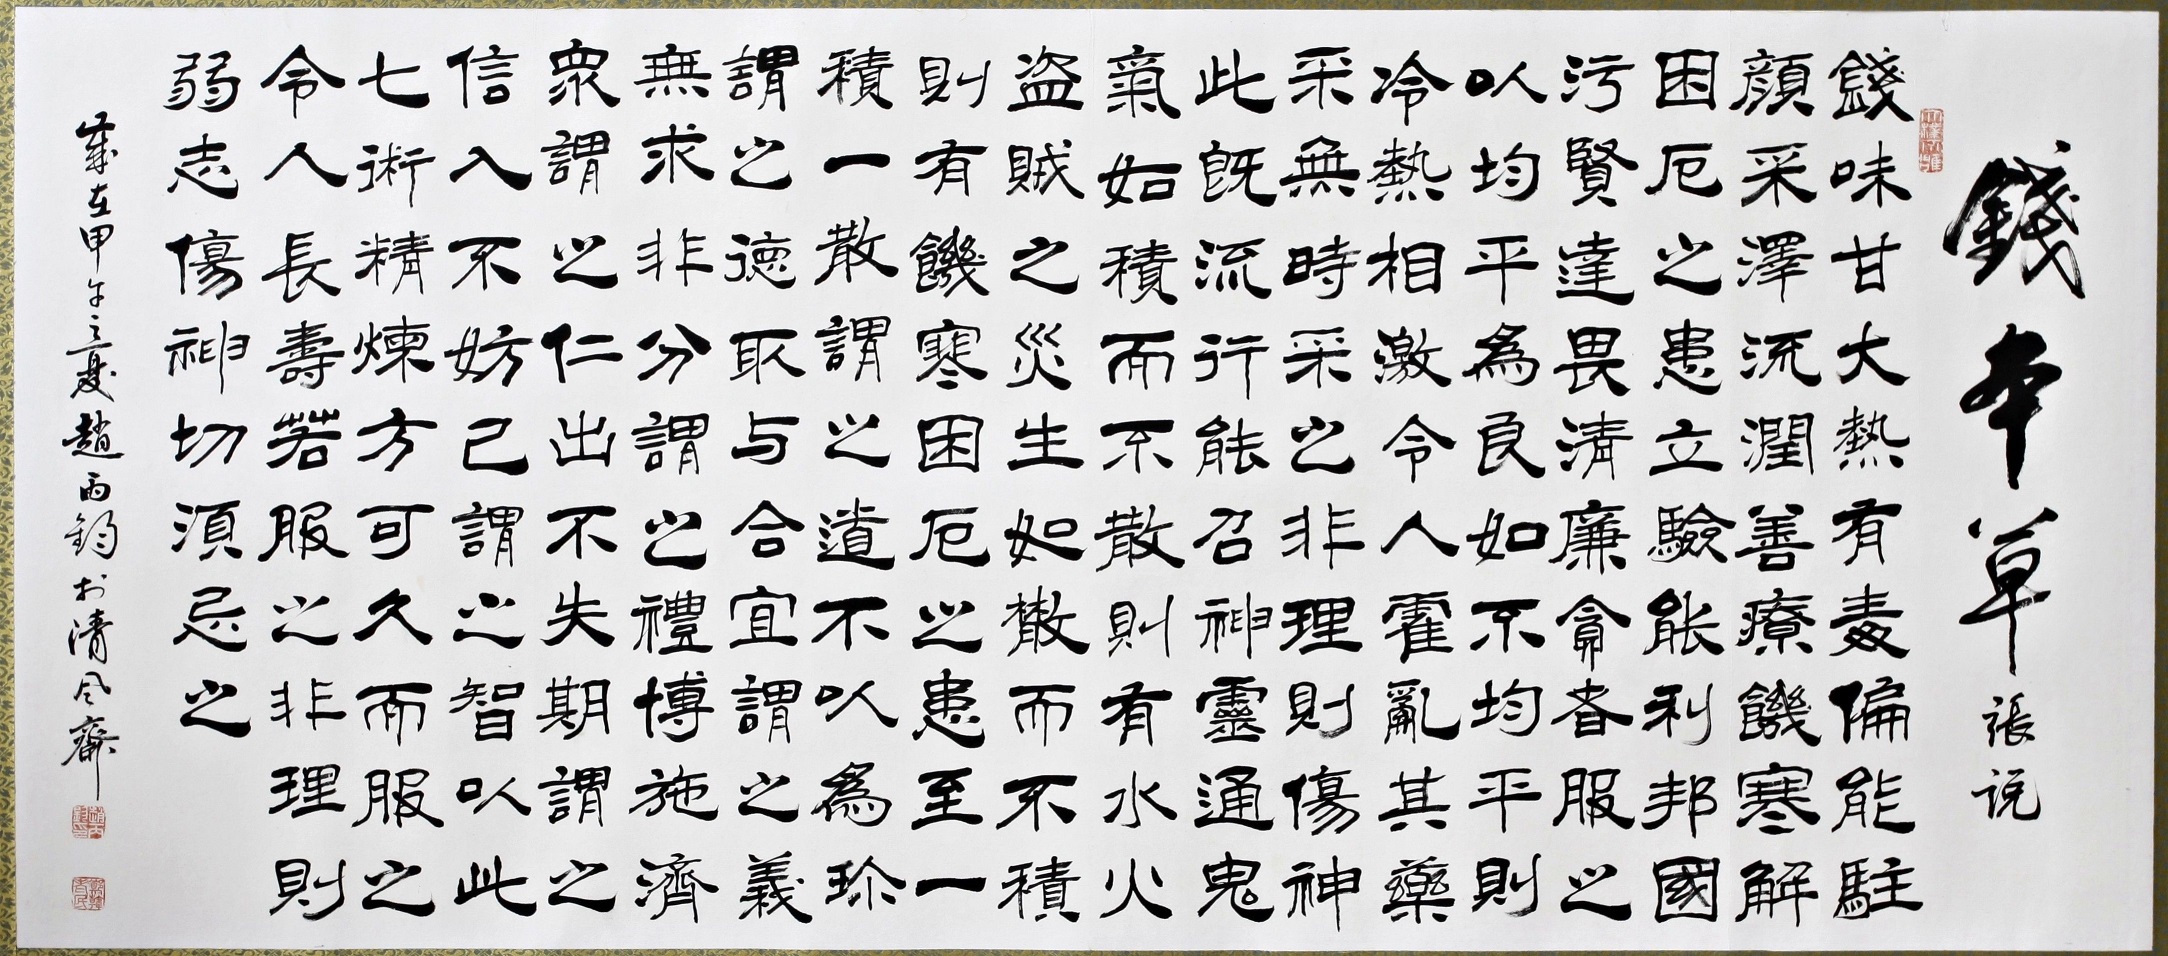 錢本草 張说
錢味甘大熱有毒偏能駐
顏采澤流潤善療饑寒解
困厄之患立驗能利邦國
污賢達畏清廉貪者服之
以均平為良如不均平則
冷熱相激令人霍亂其藥
采無時采之非理則傷神
此既流行能召神靈通鬼
氣如積而不散則有水火
盜賊之災生如散而不積
則有饑寒困厄之患至一
積一散謂之道不以為珍
謂之德取与合宜謂之義
無求非分謂之禮博施濟
眾謂之仁出不失期謂之
信入不妨己謂之智以此
七術精煉方可久而服之
令人長壽若服之非理則
弱志傷神切須忌之
歲在甲午之夏趙雨鈞於清风齋